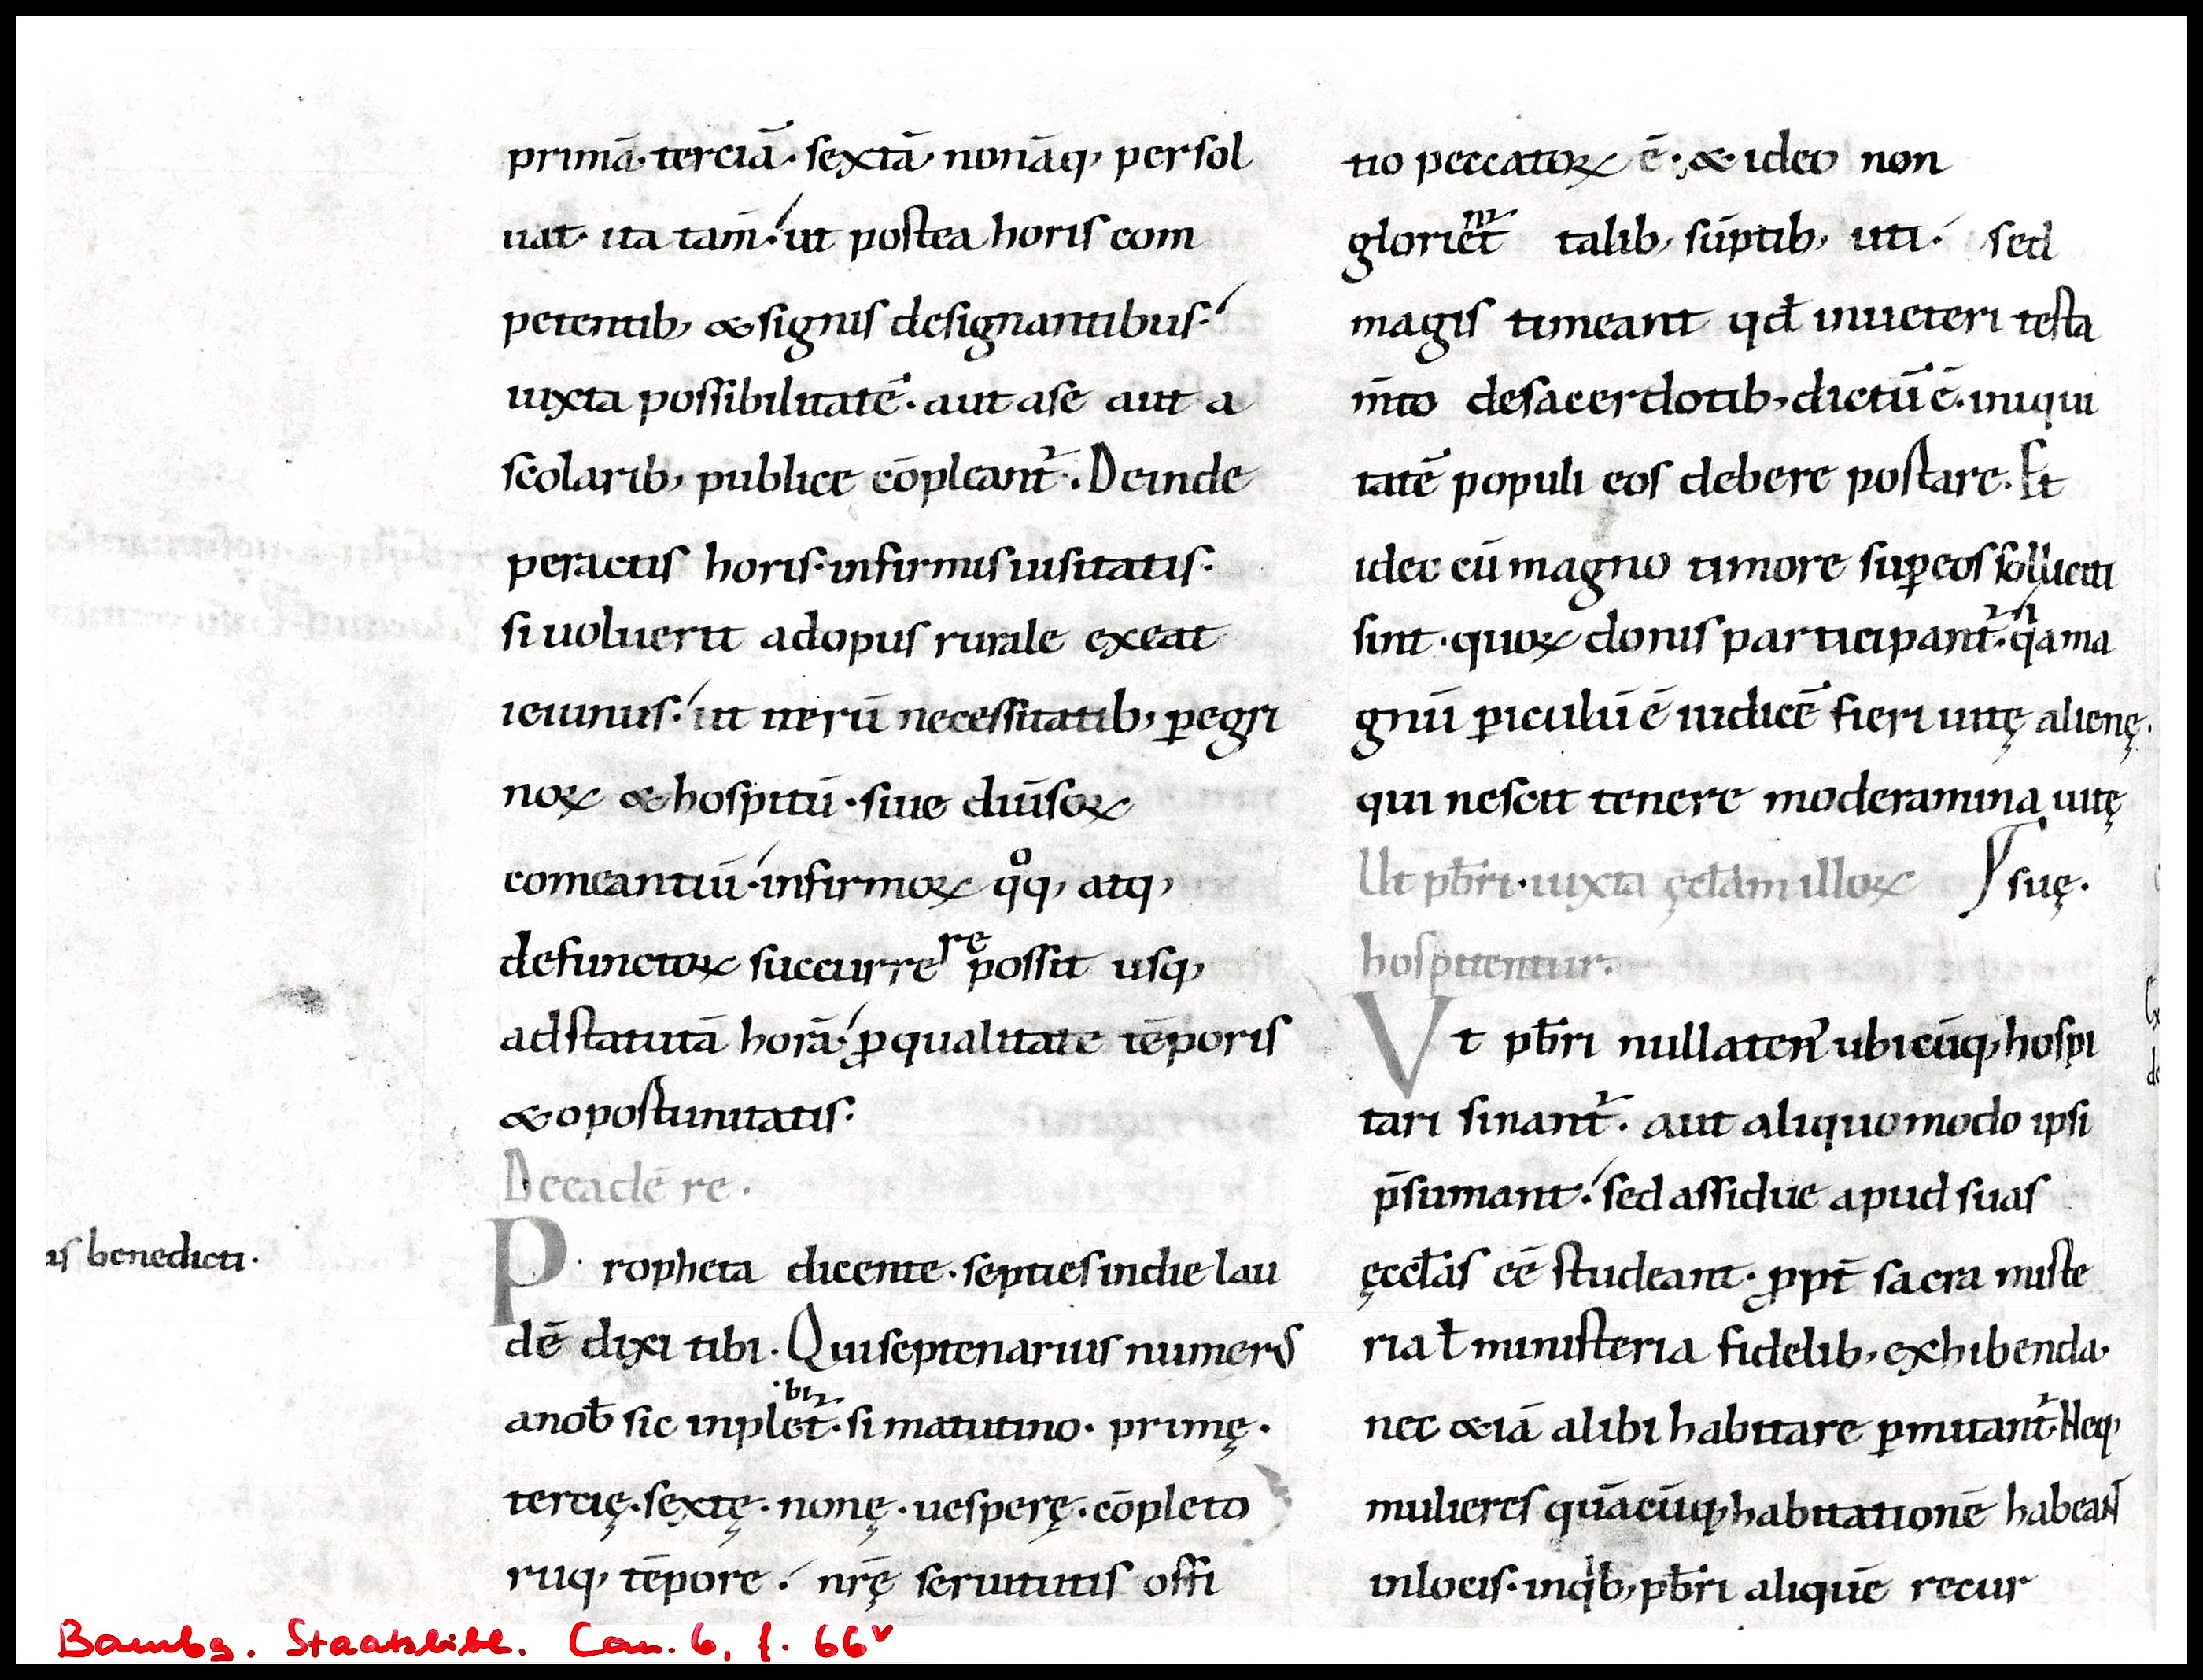 primā· terciā· sextā· nonāq; persol
uat· ita tam̄· ut postea horis com
petentib; & signis designantibus·
iuxta possibilitatē· aut ase aut a
scolarib; publice cōpleant᷑· Deinde
peractis horis· infirmis uisitatis·
si uoluerit adopus rurale exeat
ieiunus· ut iterū necessitatib; ꝑegri
noꝝ & hospitū· siue diuīsoꝝ
comeantiū· infirmoꝝ qͦq; atq;
defunctoꝝ succurrere possit usq;
adstatutā horā· ꝓqualitate tēporis
& oportunitatis·
Decadē re·
Propheta dicente· septies indie lau
dē dixi tibi· Qui septenarius numerus
anob̄ sic inplebit᷑· si matutino· primę·
tercię· sextę· nonę· uesperę· cōpleto
riiq; tēpore· nr̄ę seruitutis offi
is benedicti·
tio peccatoꝝ ē· & ideo non
glorient᷑ talib; sūptib; uti· sed
magis timeant qd̄ inueteri testa
m̄to desacerdotib; dictū ē· iniqui
tatē populi eos debere portare· Et
ideo cū magno timore suꝑeos solliciti
sint· quoꝝ donis participant᷑· qͣ ma
gnū ꝑiculū ē iudicē fieri uitę alienę·
qui nescit tenere moderamina uitę
suę·
Ut pb̄ri· iuxta ęcl̄am illoꝝ
hospitentur·
Vt pb̄ri nullaten᾽ ubicūq; hospi
tari sinant᷑· aut aliquomodo ipsi
p̄sumant· sed assidue apud suas
ęccl̄as eē studeant· ꝓpt̄ sacra miste
ria ł ministeria fidelib; exhibenda·
nec &iā alibi habitare ꝑmittant᷑· Neq;
mulieres quācūq; habitationē habeant
inlocis· inqⁱb; pb̄ri aliquē recur
Bambg. Staatsbibl. Can. 6, f. 66v